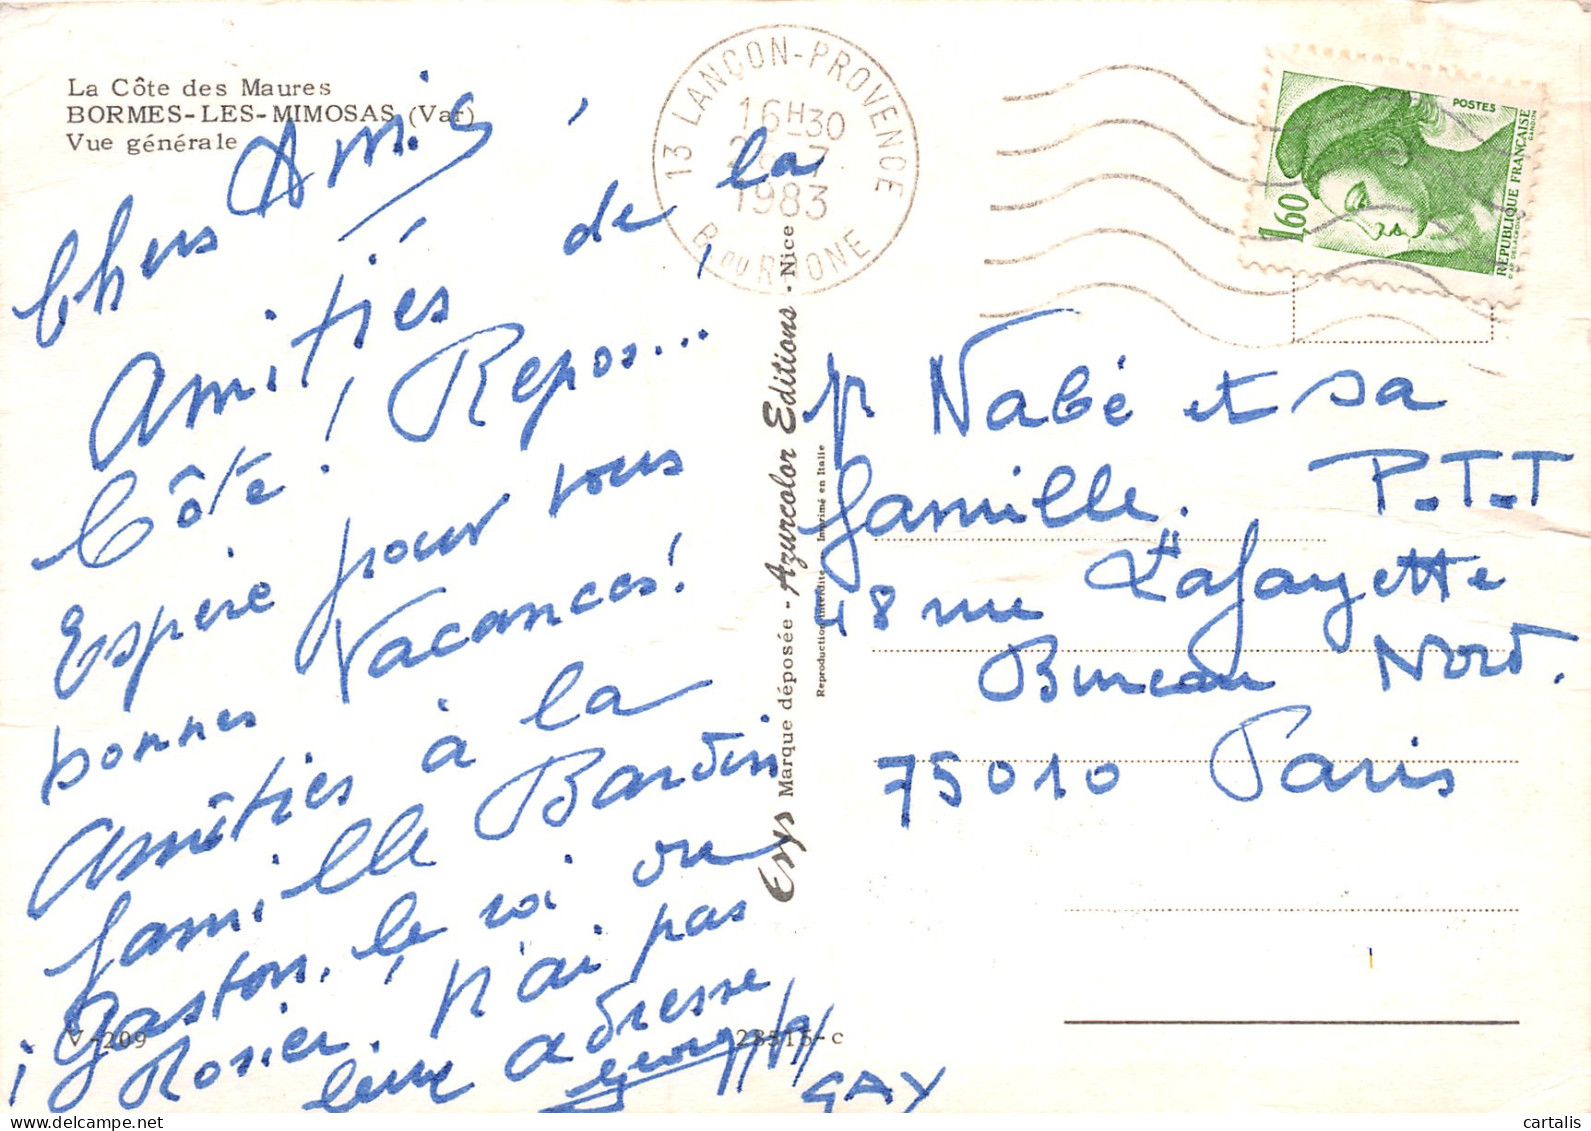 La Côte des Maures
BORMES-LES-MIMOSAS (Var)
Vue générale
Chers Amis
Amitiés de la
Côte! Repos...
Espère pour vous
bonnes Vacances!
Amitiés à la
famille Bardin
Gaston, le roi ou
Rosier! n'ai pas
leur adresse
GAY
V-209
23515-c
Marque déposée - Azurcolor Editions - Nice
Reproduction interdite - Imprimé en Italie
13 LANÇON-PROVENCE
16H30
28-7
1983
B. DU RHONE
POSTES
1,60
REPUBLIQUE FRANÇAISE
D'AP DELACROIX
GANDON
Mr Nabé et sa
famille. P.T.T
48 rue Lafayette
Bureau Nord.
75010 Paris
cartalis